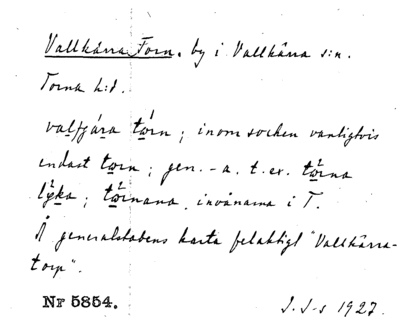 Vallkärra Torn. by i Vallkärra s:n.
Torna h:d.
valfjára tǿrn; inom socken vanligtvis
endast tœrn; gen. -a. t. ex. tœrna
lyka; tœrnana. invånarna i T.
Å generalstabens karta felaktigt "Vallkärra-
torp".
Nr 5854. I. I-s 1927.